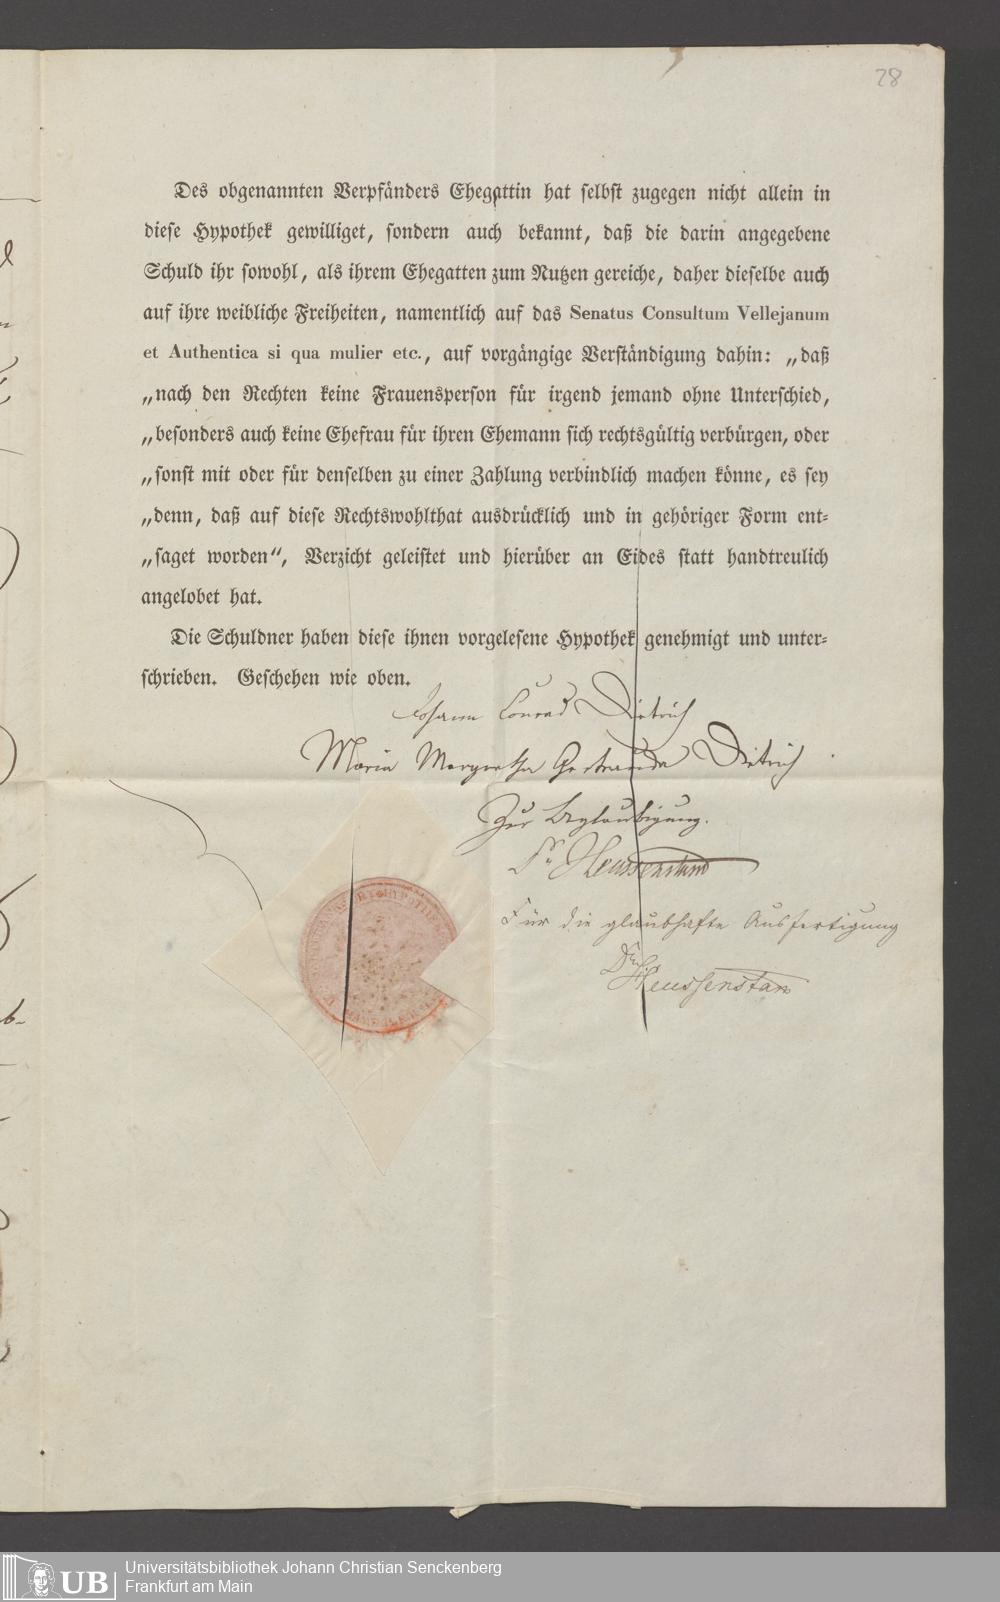 28
Des obgenannten Verpfänders Ehegattin hat selbst zugegen nicht allein in
diese Hypothek gewilliget, sondern auch bekannt, daß die darin angegebene
Schuld ihr sowohl, als ihrem Ehegatten zum Nutzen gereiche, daher dieselbe auch
auf ihre weibliche Freiheiten, namentlich auf das Senatus Consultum Vellejanum
et Authentica si qua mulier etc., auf vorgängige Verständigung dahin: „daß
„nach den Rechten keine Frauensperson für irgend jemand ohne Unterschied,
„besonders auch keine Ehefrau für ihren Ehemann sich rechtsgültig verbürgen, oder
„sonst mit oder für denselben zu einer Zahlung verbindlich machen könne, es sey
„denn, daß auf diese Rechtswohlthat ausdrücklich und in gehöriger Form ent-
„saget worden“, Verzicht geleistet und hierüber an Eides statt handtreulich
angelobet hat.
Die Schuldner haben diese ihnen vorgelesene Hypothek genehmigt und unter-
schrieben. Geschehen wie oben.
Johann Conrad Dietrich
Maria Margretha Gertrauda Dietrich
Zur Beglaubigung.
Dr Heussenstamm
Für die glaubhafte Ausfertigung
Heussenstam
Universitätsbibliothek Johann Christian Senckenberg
UB
Frankfurt am Main